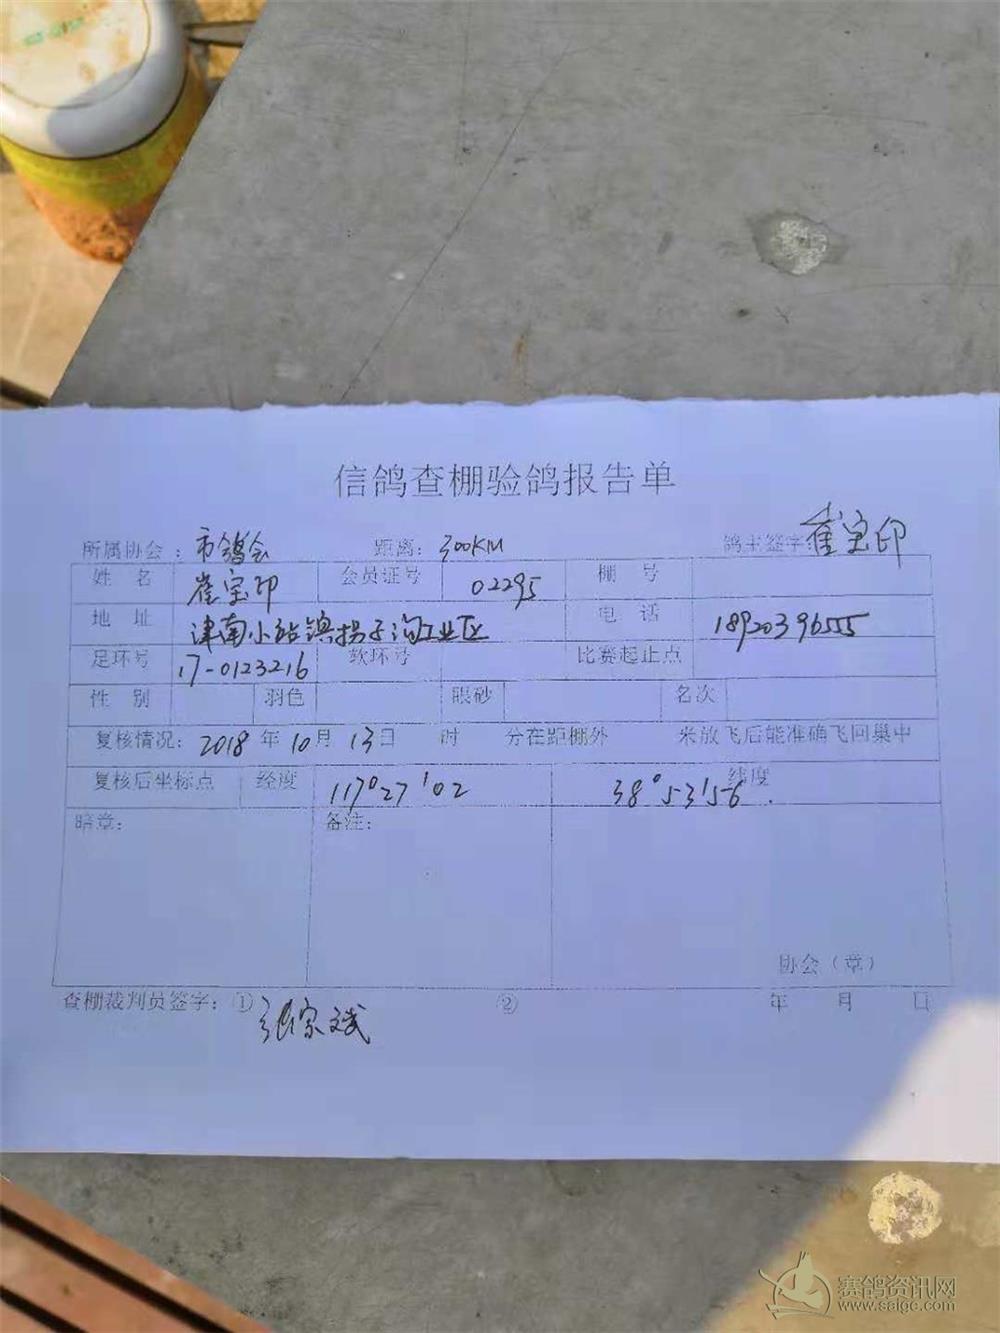 信鸽查棚验鸽报告单
所属协会：市鸽会 距离：300KM 鸽主签字：崔宝印
姓 名 崔宝印 会员证号 02295 棚 号
地 址 津南小站镇拐子沟工业区 电 话 18920396555
足环号 17-0123216 软环号 比赛起止点
性 别 羽色 眼砂 名次
复核情况：2018年10月13日 时 分在距棚外 米放飞后能准确飞回巢中
复核后坐标点 经度 117°27′02 纬度 38°53′56.
暗章： 备注：
协会（章）
查棚裁判员签字：① 张家斌 ② 年 月 日
赛鸽资讯网
www.saigc.com